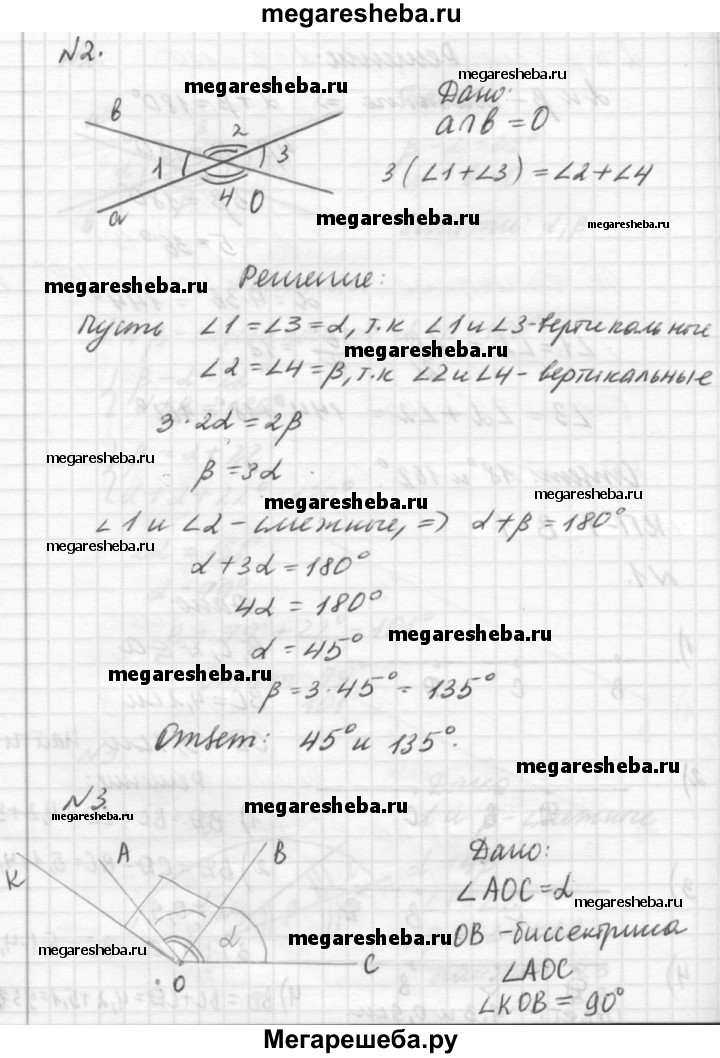 megaresheba.ru
N2.
megaresheba.ru
megaresheba.ru
Дано:
a∩b = O
в
2
1
3
4
O
a
3 (∠1+∠3) = ∠2+∠4
megaresheba.ru
megaresheba.ru
megaresheba.ru
Решение:
Пусть ∠1 = ∠3 = α, т.к ∠1 и ∠3 - вертикальные
megaresheba.ru
∠2 = ∠4 = β, т.к ∠2 и ∠4 - вертикальные
3 · 2α = 2β
megaresheba.ru
β = 3α
megaresheba.ru
megaresheba.ru
∠1 и ∠2 - смежные, => α + β = 180°
megaresheba.ru
α + 3α = 180°
4α = 180°
megaresheba.ru
α = 45°
megaresheba.ru
β = 3 · 45° = 135°
Ответ: 45° и 135°.
megaresheba.ru
N3.
megaresheba.ru
megaresheba.ru
K
A
B
α
O
C
Дано:
∠AOC = α
megaresheba.ru
OB - биссектриса
megaresheba.ru
megaresheba.ru
∠AOC
∠KOB = 90°
Мегарешеба.ру